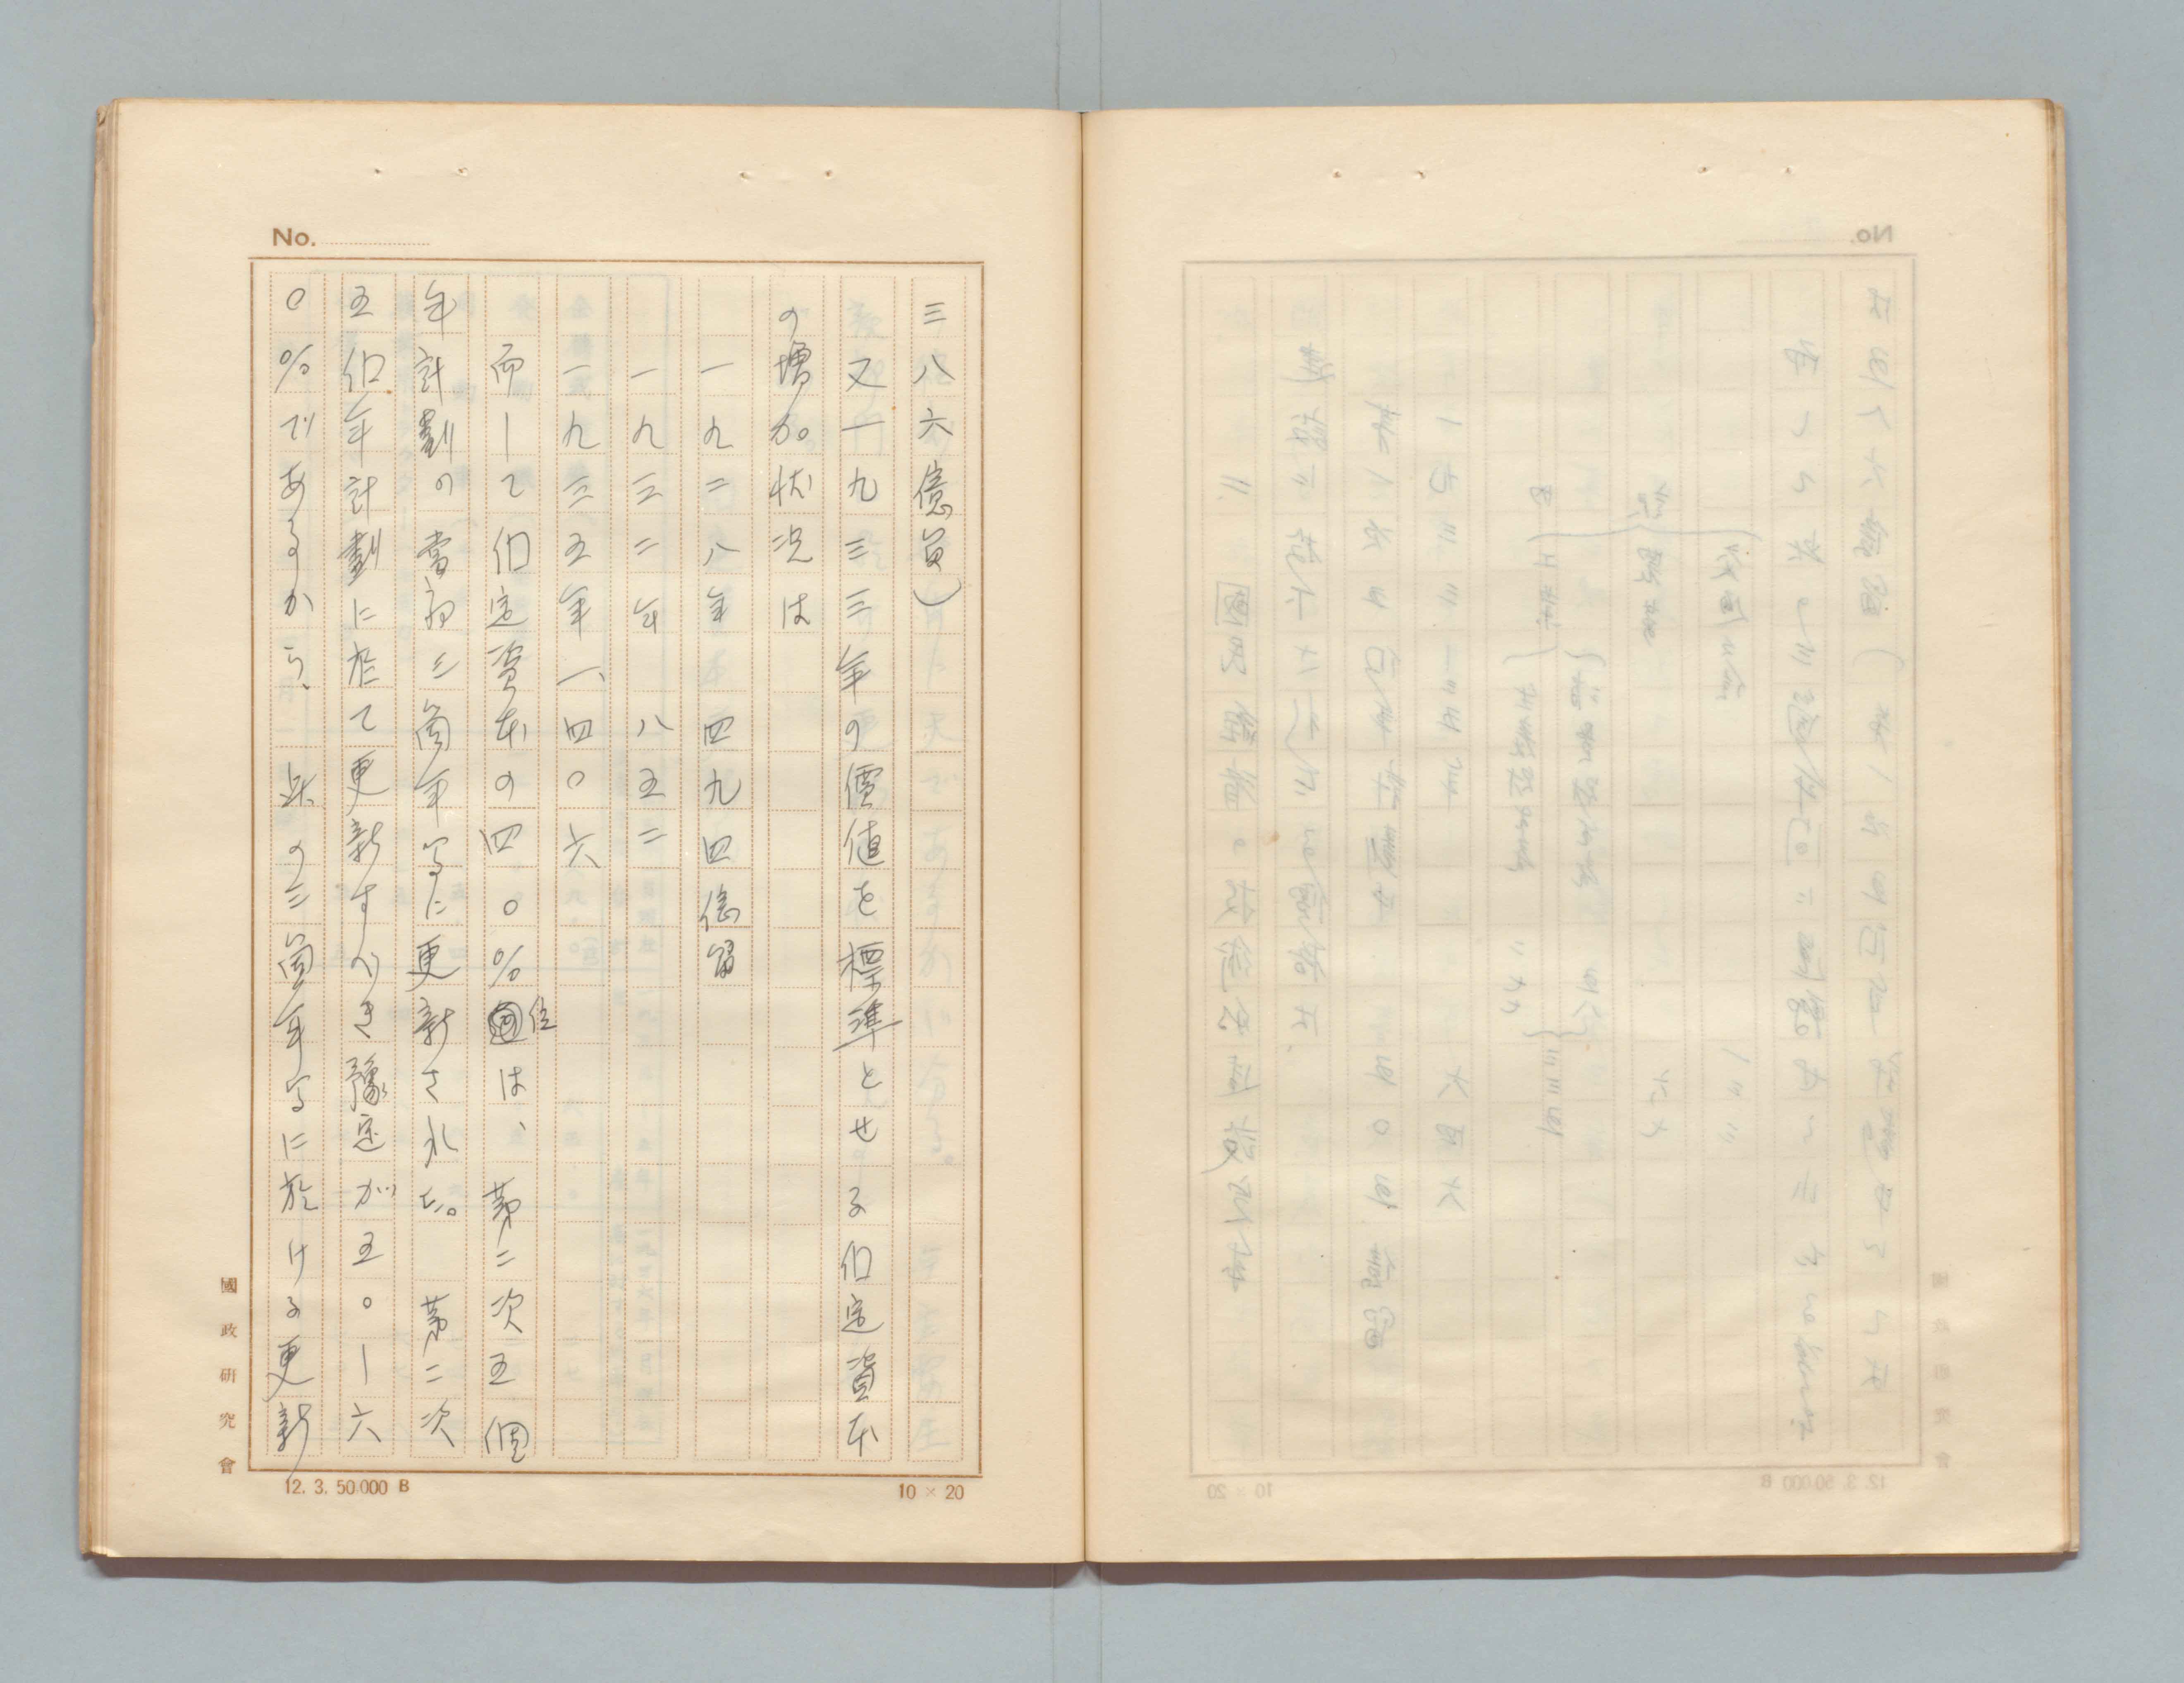 No.
三八六億員)
又一九三三年の價値を標準とせる㐰定資本
の増加狀況は
一九二八年 四九四億留
一九三二年 八五二
一九三五年 一、四〇六
而して㐰定資本の四〇%位は、第二次五個
年計劃の當初三箇年间に更新された。 第二次
五㐰年計劃に於て更新すべき豫定が五〇ー六
〇%であるから、 此の三箇年间に於ける更新
國政研究會
12. 3. 50.000 B
10 × 20